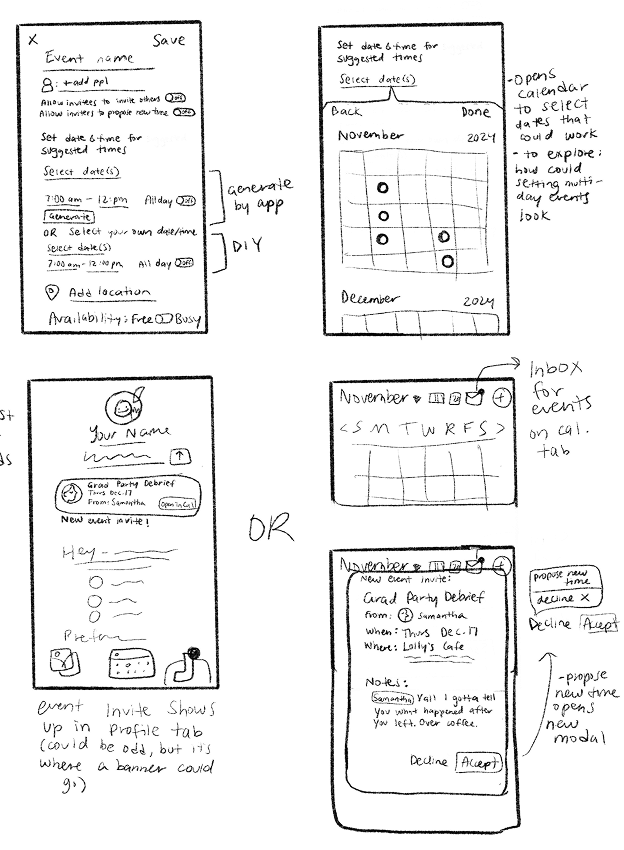 X Save
Event name
: +add ppl
Allow invitees to invite others off
Allow inviters to propose new time off
Set date & time for
suggested times
Select date(s)
7:00 am - 12:pm All day off
Generate
OR Select your own date/time
Select date(s)
7:00 am - 12:00 pm All day off
Add location
Availability: Free Busy
generate
by app
DIY
Set date & time for
suggested times
Select date(s)
Back Done
November 2024
December 2024
- Opens
calendar
to select
dates that
could work
- to explore:
how could
setting multi-
day events
look
Your Name
Grad Party Debrief
Thurs Dec.17
From: Samantha
Open in Cal
New event invite!
Hey
event Invite Shows
up in Profile tab
(could be odd, but it's
where a banner could
go)
OR
November
< S M T W R F S >
Inbox
for
events
on cal.
tab
November
New event invite:
Grad Party Debrief
From: Samantha
When: Thurs Dec.17
Where: Lolly's Cafe
Notes:
Samantha Yall I gotta tell
you what happened after
you left. Over coffee.
Decline Accept
propose new
time
decline X
Decline Acept
- propose
new time
opens
new
modal